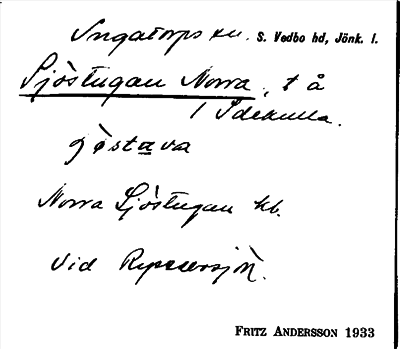 Ingatorps sn. S. Vedbo hd, Jönk. l.
Sjöstugan Norra, t å
1 Idekulla.
ʃøstava
Norra Sjöstugan kb.
Vid Ryssersjön.
FRITZ ANDERSSON 1933